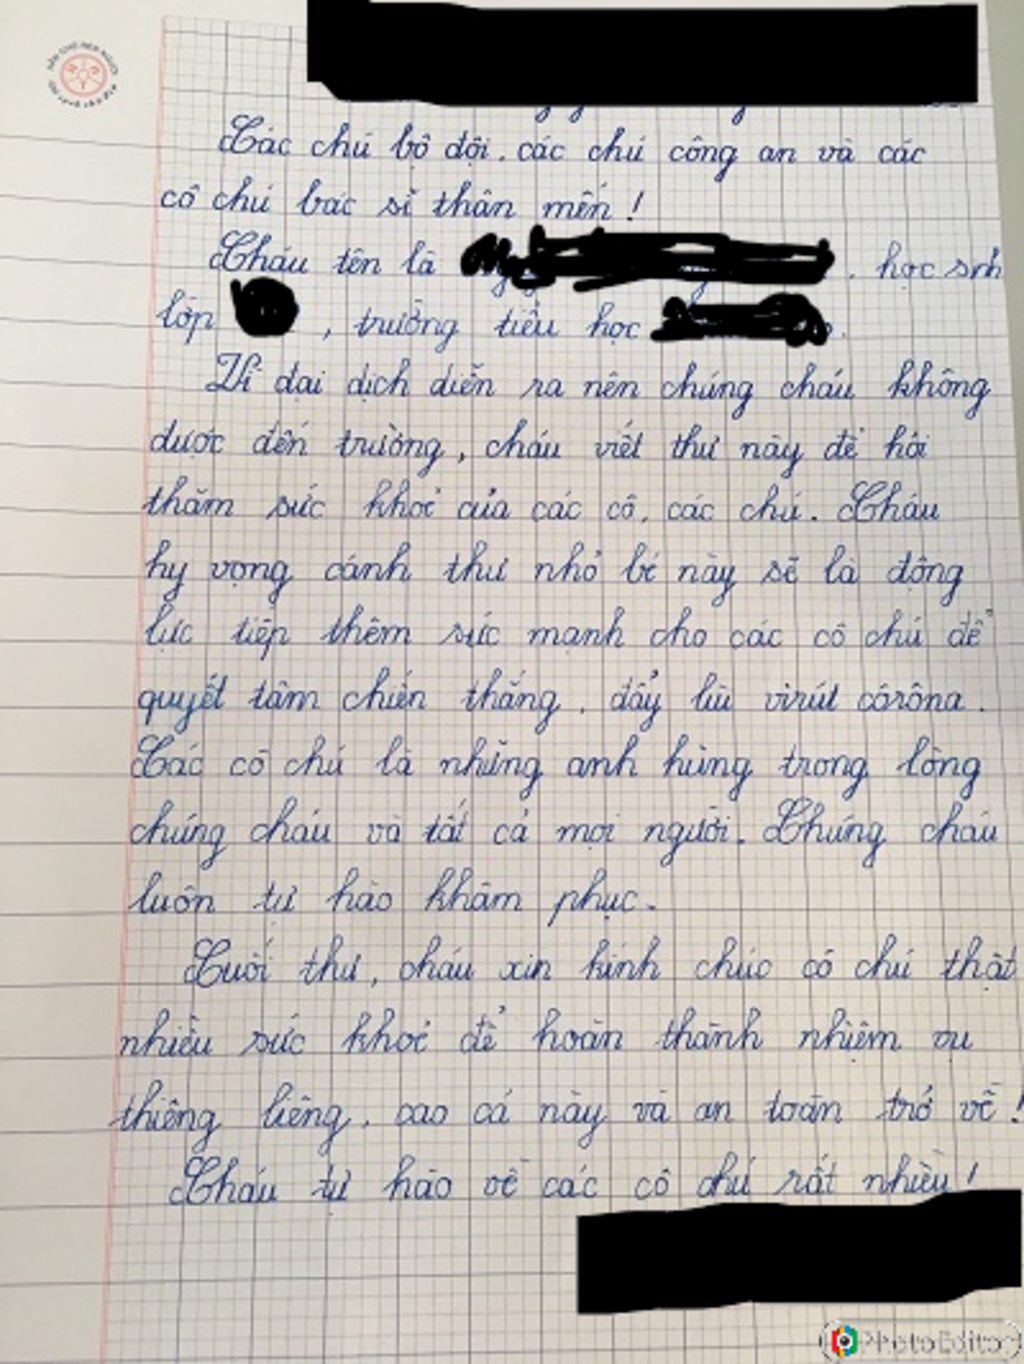 Các chú bộ đội, các chú công an và các
cô chú bác sĩ thân mến!
Cháu tên là , học sinh
lớp , trường tiểu học .
Vì đại dịch diễn ra nên chúng cháu không
được đến trường, cháu viết thư này để hỏi
thăm sức khoẻ của các cô, các chú. Cháu
hy vọng cánh thư nhỏ bé này sẽ là động
lực tiếp thêm sức mạnh cho các cô chú để
quyết tâm chiến thắng, đẩy lùi virút côrôna.
Các cô chú là những anh hùng trong lòng
chúng cháu và tất cả mọi người. Chúng cháu
luôn tự hào khâm phục.
Cuối thư, cháu xin kính chúc cô chú thật
nhiều sức khoẻ để hoàn thành nhiệm vụ
thiêng liêng, cao cả này và an toàn trở về!
Cháu tự hào về các cô chú rất nhiều!
PhotoEditor